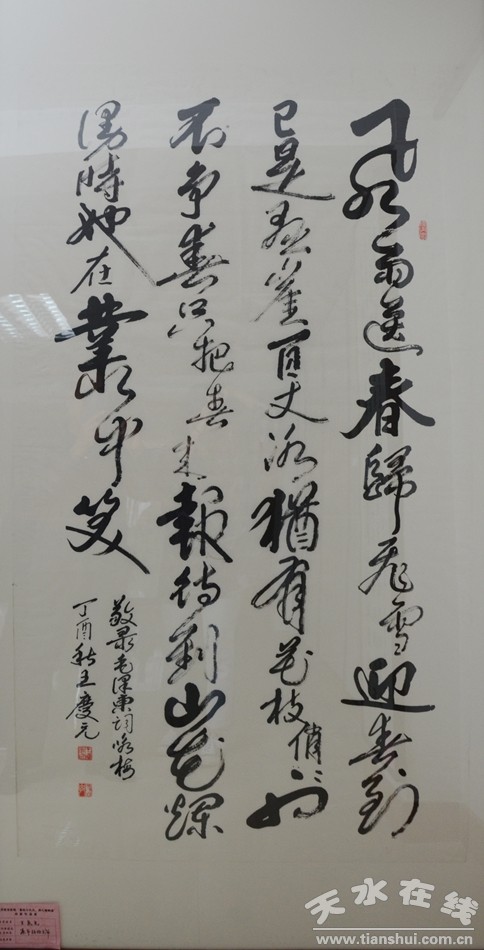 風雨送春歸飛雪迎春到
已是懸崖百丈冰猶有花枝俏〻也
不争春只把春来報待到山花爛
漫時她在叢中笑
敬录毛澤東詞咏梅
丁酉秋王慶元
天水在线
www.tianshui.com.cn